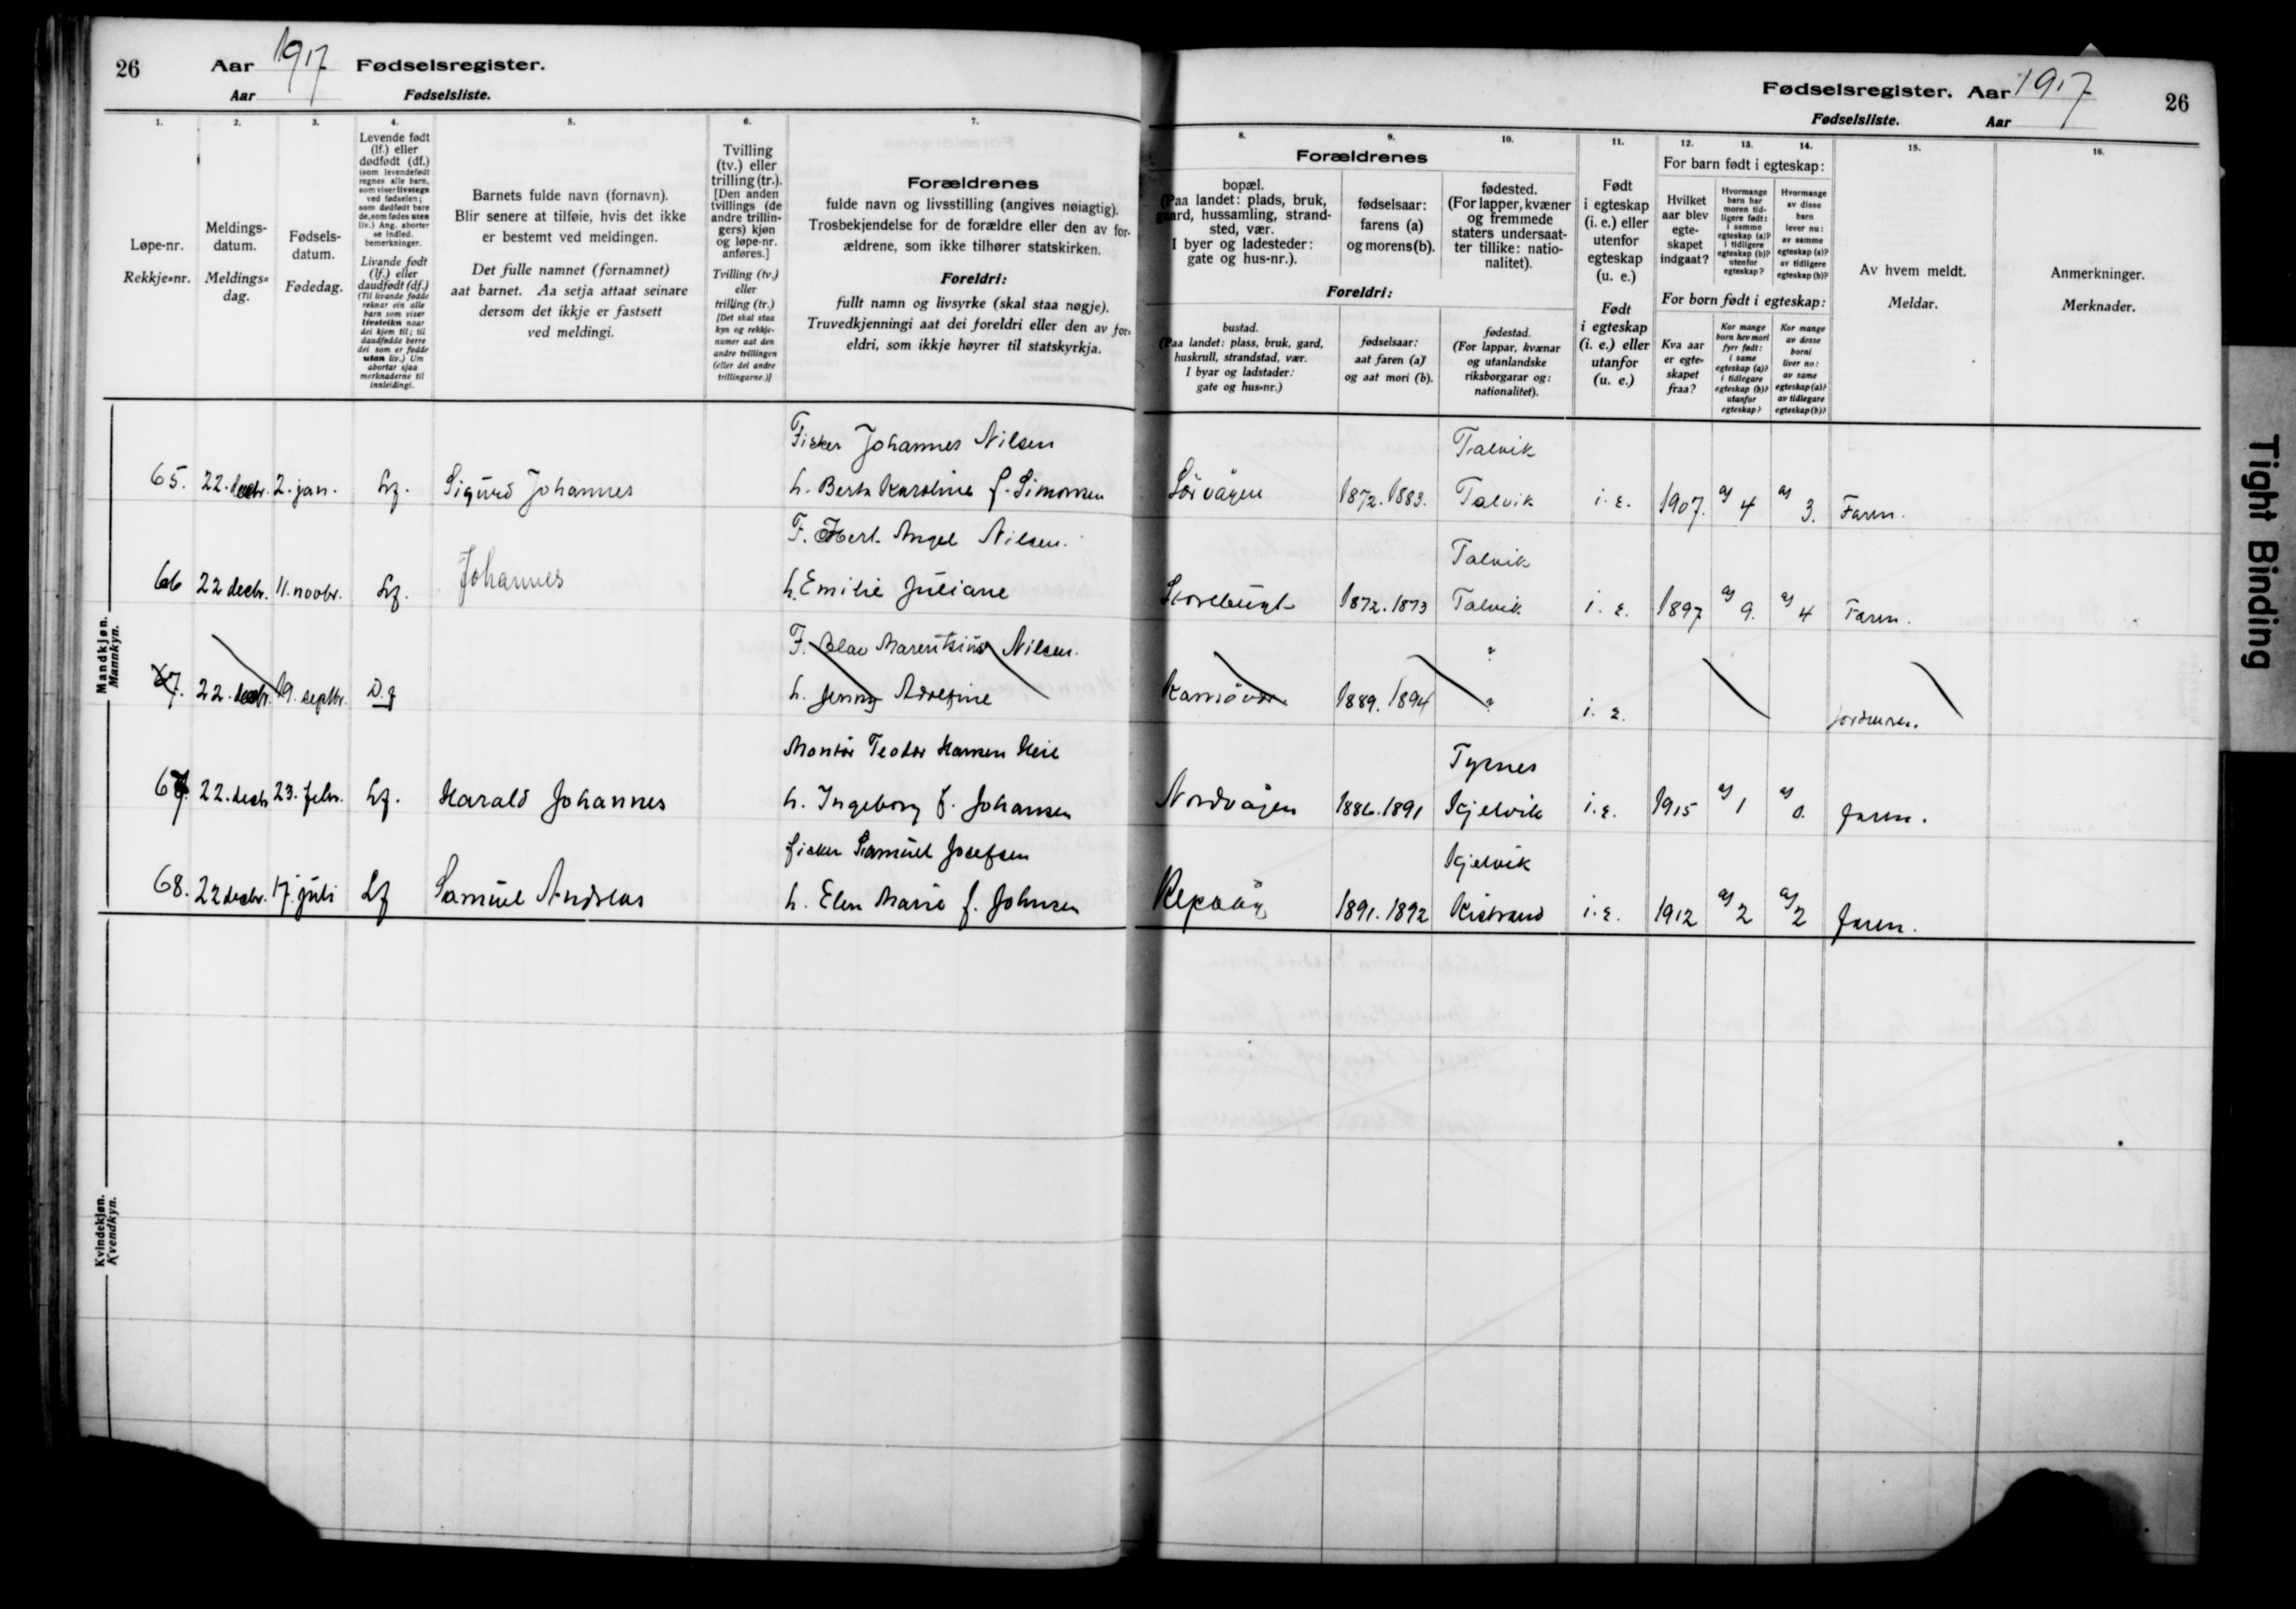 26 Aar 1917 Fødselsregister.
Aar Fødselsliste.
1. 2. 3. 4. 5. 6. 7.
Løpe-nr.
Rekkje-nr.
Meldings-
datum.
Meldings-
dag.
Fødsels-
datum.
Fødedag.
Levende født
(lf.) eller
dødfødt (df.)
(som levendefødt
regnes alle barn,
som viser livstegn
ved fødselen;
som dødfødt bare
de, som fødes uten
liv.) Ang. aborter
se indled.
bemerkninger.
Livande født
(lf.) eller
daudfødt (df.)
(Til livande fødde
reknar ein alle
barn som viser
livsteikn naar
dei kjem til; til
daudfødde berre
dei som er fødde
utan liv.) Um
abortar sjaa
merknaderne til
innleidingi.
Barnets fulde navn (fornavn).
Blir senere at tilføie, hvis det ikke
er bestemt ved meldingen.
Det fulle namnet (fornamnet)
aat barnet. Aa setja attaat seinare
dersom det ikkje er fastsett
ved meldingi.
Tvilling
(tv.) eller
trilling (tr.).
[Den anden
tvillings (de
andre trillin-
gers) kjøn
og løpe-nr.
anføres.]
Tvilling (tv.)
eller
trilling (tr.)
[Det skal staa
kyn og rekkje-
numer aat den
andre tvillingen
(eller dei andre
trillingarne.)]
Forældrenes
fulde navn og livsstilling (angives nøiagtig).
Trosbekjendelse for de forældre eller den av for-
ældrene, som ikke tilhører statskirken.
Foreldri:
fullt namn og livsyrke (skal staa nøgje).
Truvedkjenningi aat dei foreldri eller den av for-
eldri, som ikkje høyrer til statskyrkja.
Mandkjøn.
Mannkyn.
Fisker Johannes Nilsen
65. 22. decbr. 2. jan. Lf. Sigurd Johannes h. Berta Karoline f. Simonsen
F. Herl. Angel Nilsen.
66 22 decbr. 11. novbr. Lf. Johannes h. Emilie Juliane
F. Olav Marentsius Nilsen.
67. 22. decbr. 19. septbr. D.f h. Jenny Adrefine
Montør Teodor Hansen Heie
67. 22. decbr 23. febr. Lf. Harald Johannes h. Ingeborg f. Johansen
fisker Samuel Josefsen
68. 22 decbr. 17. juli Lf Samuel Andreas h. Elen Marie f. Johnsen
Kvindekjøn.
Kvendkyn.
Fødselsregister. Aar 1917 26
Fødselsliste. Aar
8. 9. 10. 11. 12. 13. 14. 15. 16.
Forældrenes
bopæl.
(Paa landet: plads, bruk,
gaard, hussamling, strand-
sted, vær.
I byer og ladesteder:
gate og hus-nr.).
fødselsaar:
farens (a)
og morens (b).
fødested.
(For lapper, kvæner
og fremmede
staters undersaat-
ter tillike: natio-
nalitet).
Foreldri:
bustad.
(Paa landet: plass, bruk, gard,
huskrull, strandstad, vær.
I byar og ladstader:
gate og hus-nr.)
fødselsaar:
aat faren (a)
og aat mori (b).
fødestad.
(For lappar, kvænar
og utanlandske
riksborgarar og:
nationalitet).
Født
i egteskap
(i. e.) eller
utenfor
egteskap
(u. e.)
Født
i egteskap
(i. e.) eller
utanfor
(u. e.)
For barn født i egteskap:
Hvilket
aar blev
egte-
skapet
indgaat?
Hvormange
barn har
moren tid-
ligere født:
i samme
egteskap (a)?
i tidligere
egteskap (b)?
utenfor
egteskap?
Hvormange
av disse
barn
lever nu:
av samme
egteskap (a)?
av tidligere
egteskap (b)?
For born født i egteskap:
Kva aar
er egte-
skapet
fraa?
Kor mange
born hev mori
fyrr født:
i same
egteskap (a)?
i tidlegare
egteskap (b)?
utanfor
egteskap?
Kor mange
av desse
borni
liver no:
av same
egteskap (a)?
av tidlegare
egteskap (b)?
Av hvem meldt.
Meldar.
Anmerkninger.
Merknader.
Talvik
Sørvågen 1872. 1883. Talvik i. e. 1907. a) 4 a) 3. Faren.
Talvik
Storebugt 1872. 1873 Talvik i. e. 1897 a) 9. a) 4 Faren.
?
Kamøvær 1889. 1894 ? i. e. Jordmoren.
Tysnes
Nordvågen 1886. 1891 Kjelvik i. e. 1915 a) 1 a) 0. faren.
Kjelvik
Repvåg 1891. 1892 Kistrand i. e. 1912 a) 2 a) 2 faren.
Tight Binding